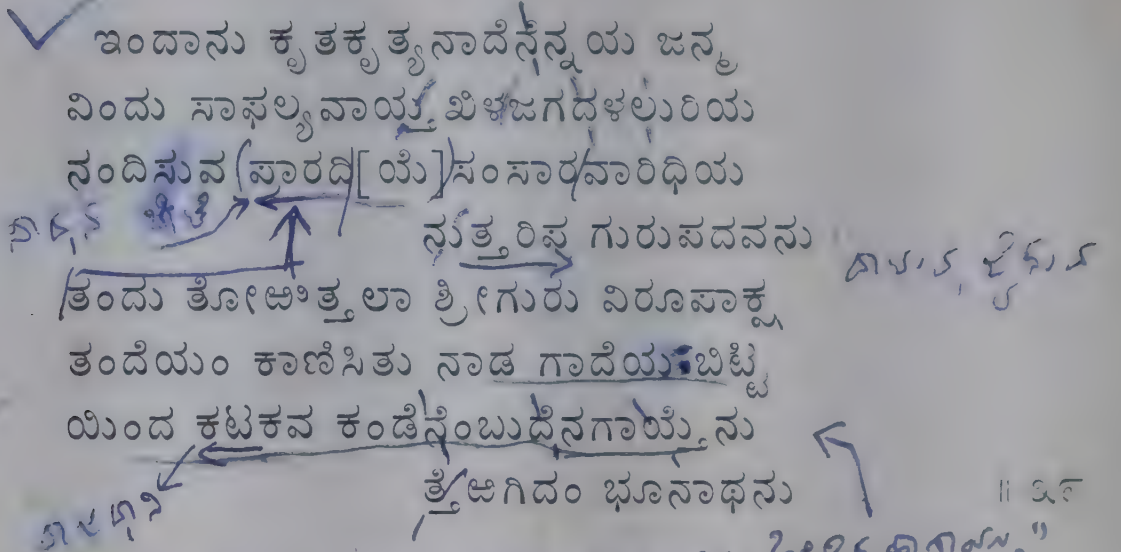 ಇಂದಾನು ಕೃತಕೃತ್ಯನಾದೆನೆನ್ನಯ ಜನ್ಮ
ವಿಂದು ಸಾಫಲ್ಯವಾಯ್ತಖಿಳಜಗದಳಲುರಿಯ
ನಂದಿಸುವ (ಪಾರದಿ[ಯೆ] ಸಂಸಾರವಾರಿಧಿಯ
ನುತ್ತರಿಪ ಗುರುಪದವನು
ತಂದು ತೋಱಿತ್ತಲಾ ಶ್ರೀಗುರು ವಿರೂಪಾಕ್ಷ
ತಂದೆಯಂ ಕಾಣಿಸಿತು ನಾಡ ಗಾದೆಯ ಬಿಟ್ಟಿ
ಯಿಂದ ಕಟಕವ ಕಂಡೆನೆಂಬುದೆನಗಾಯ್ತೆನು
ತ್ತೆಱಗಿದಂ ಭೂನಾಥನು ॥ ೩೯